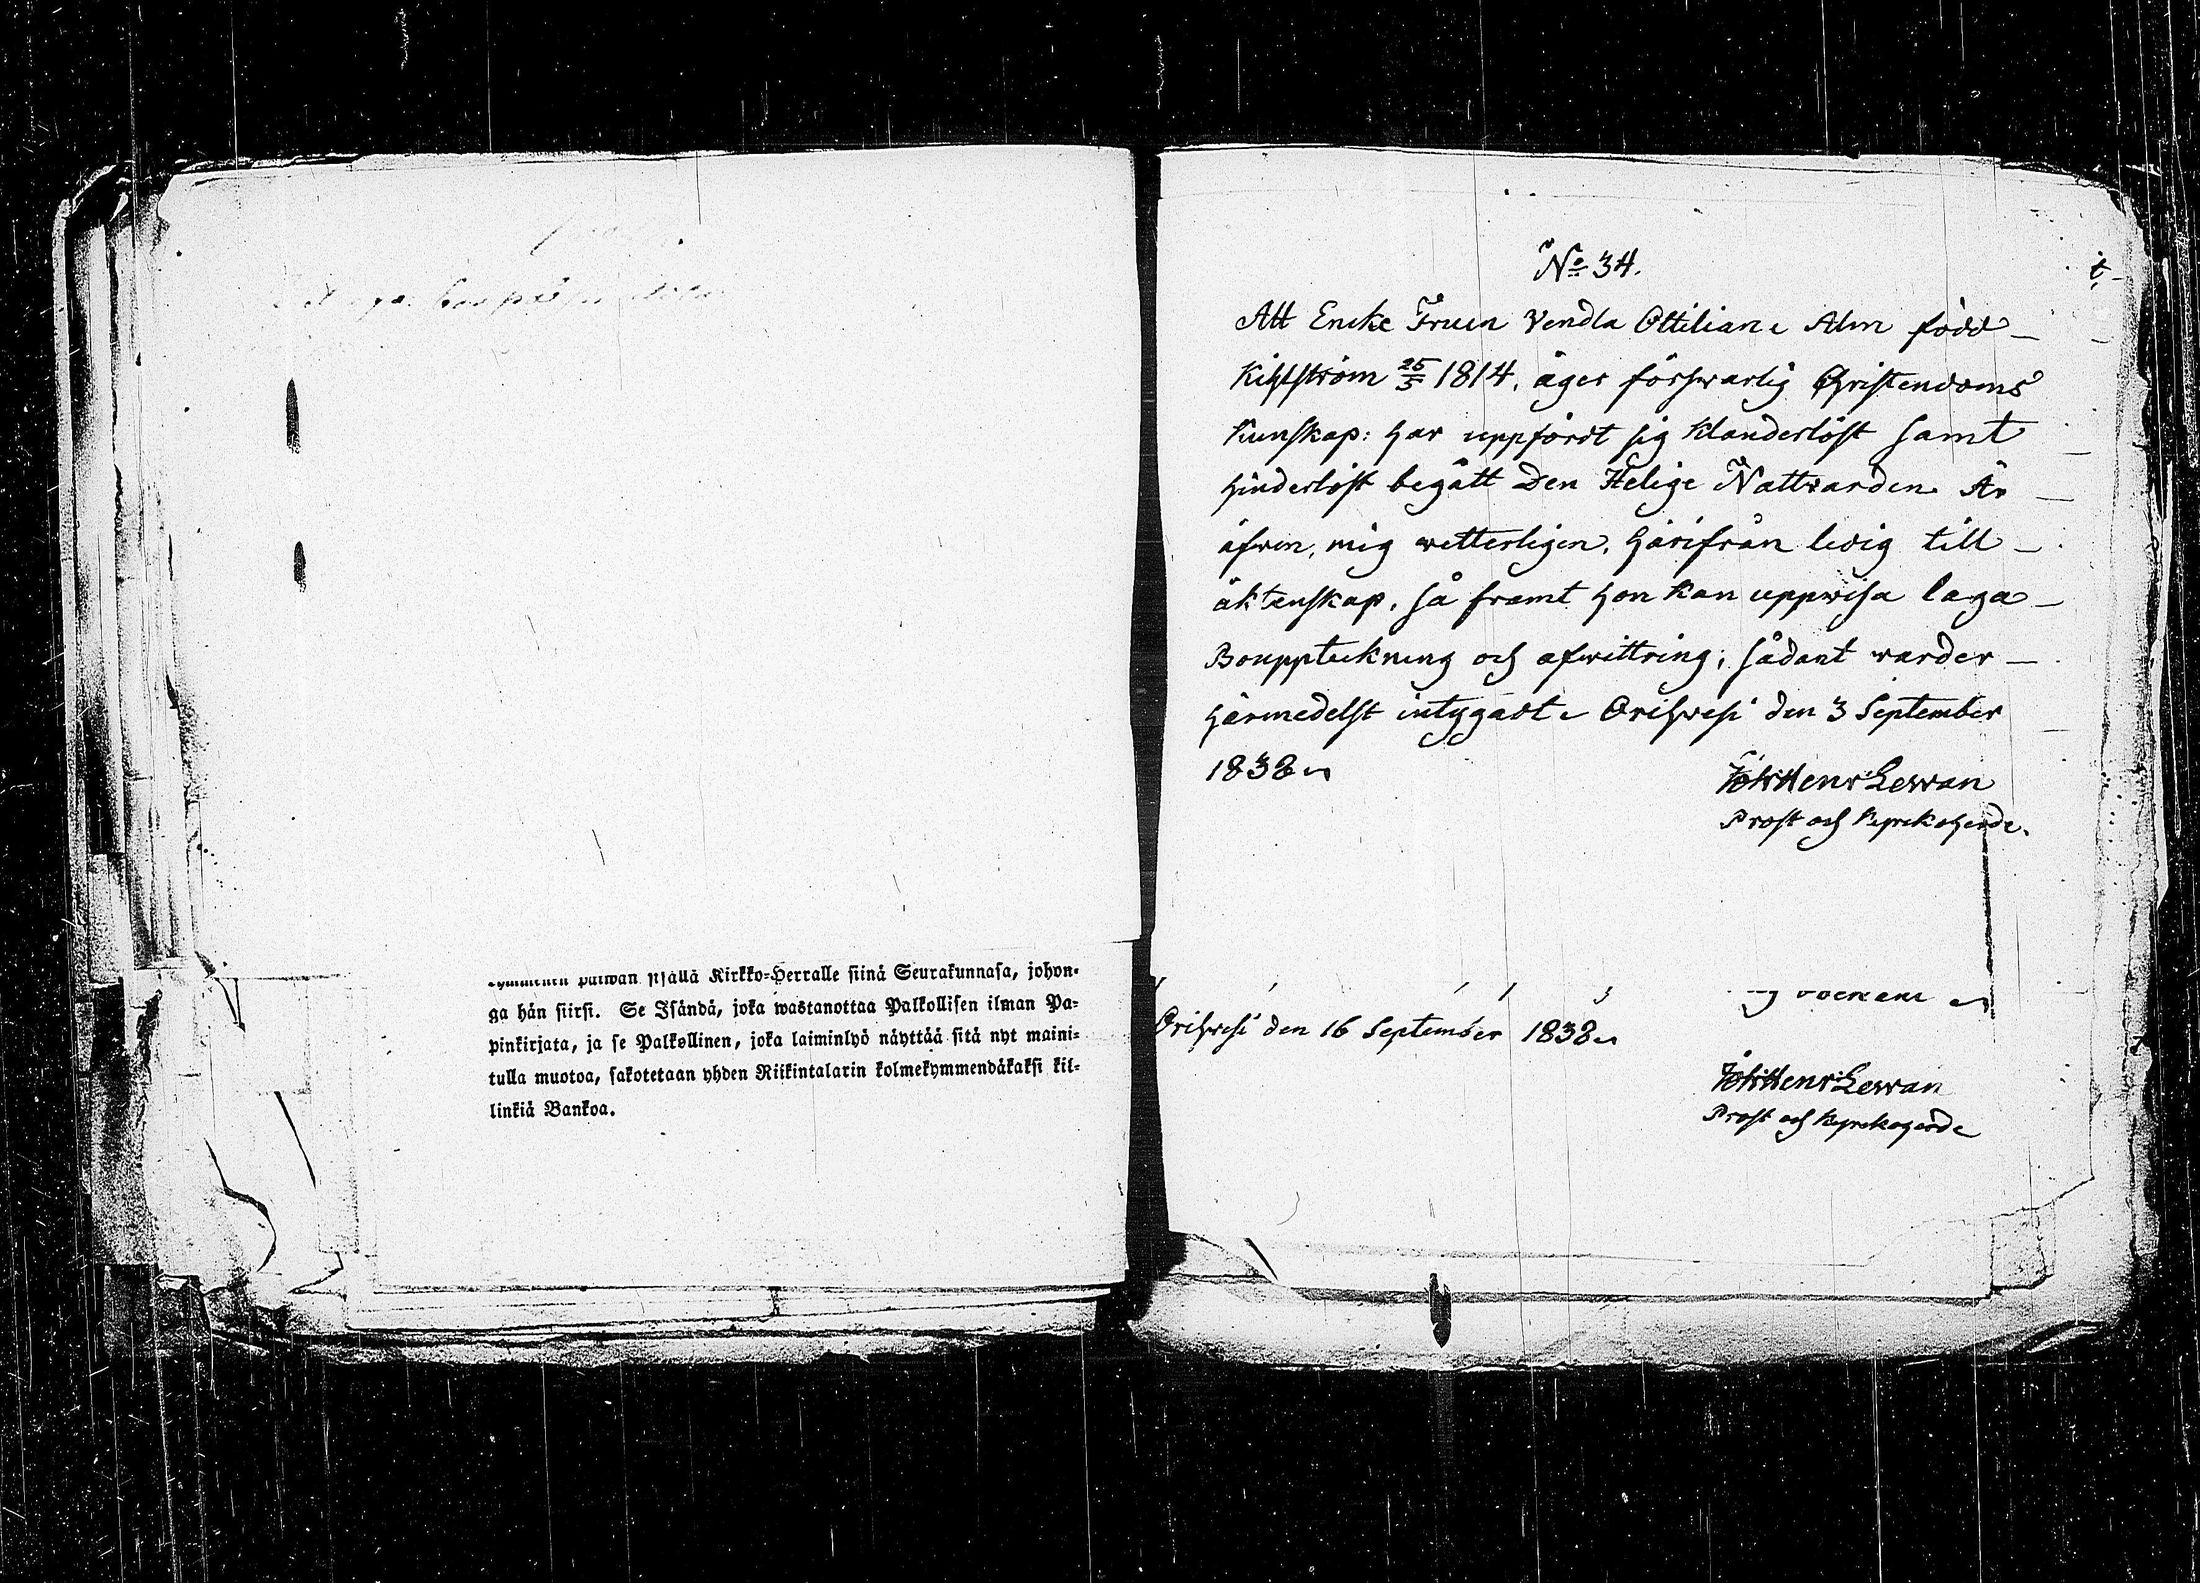 päiwän sisällä Kirkko-Herralle siinä Seurakunnasa, johon-
ga hän siirsi. Se Isändä, joka wastanottaa Palkollisen ilman Pa-
pinkirjata, ja se Palkollinen, joka laiminlyö näyttää sitä nyt maini-
tulla muotoa, sakotetaan yhden Riikintalarin kolmekymmendäkaksi kil-
linkiä Bankoa.
No 34.
Att Encke Fruen Vendla Ottiliana Alm född
Kihlström 25/5 1814, äger förswarlig Christendoms
Kunskap: har uppfördt sig klanderlöst samt
hinderlöst begått Den Helige Nattvarden. Är
äfwen, mig vetterligen, härifrån ledig till
äktenskap, så framt hon kan uppwisa laga
Bouppteckning och afwittring; sådant varder
härmedelst intygadt. Orihvesi den 3 September
1838
Joh: Henr: Lewan
Prost och Kyrckoherde.
Orihvesi den 16 September 1838
Joh: Henr: Lewan
Prost och Kyrckoherde